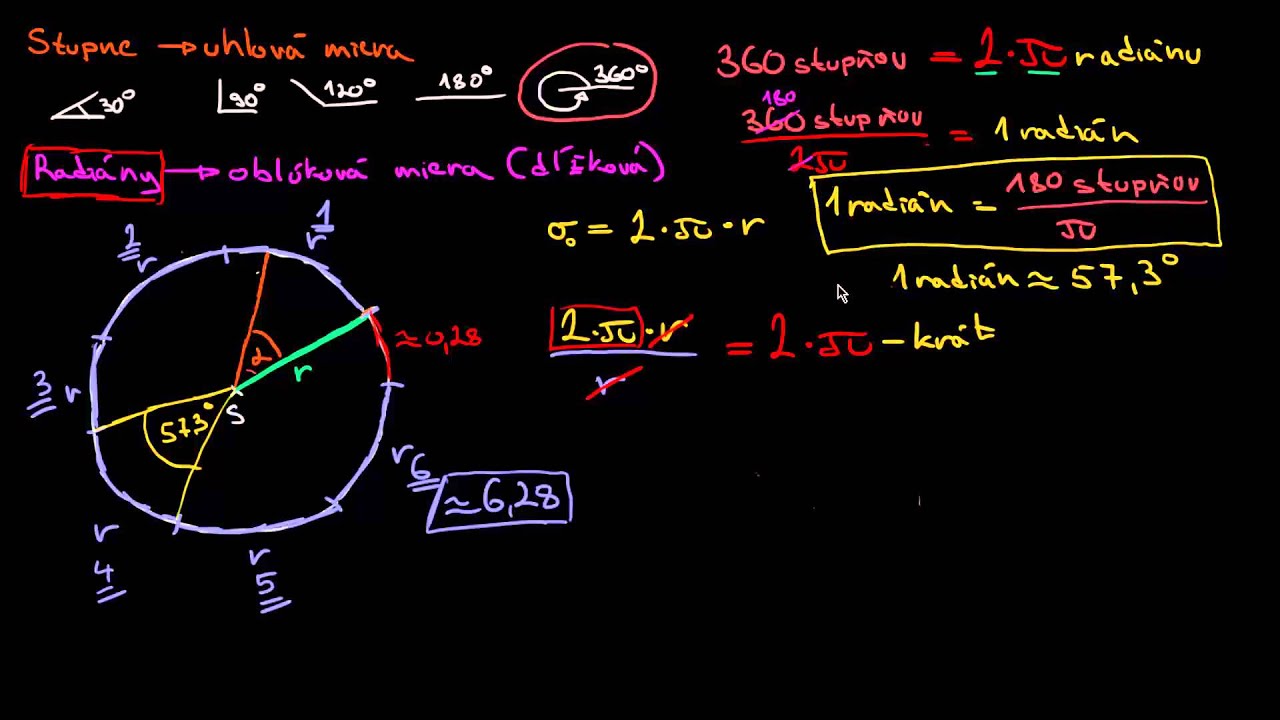 Stupne → uhlová miera
30° 90° 120° 180° 360°
Radiány → oblúková miera (dĺžková)
360 stupňov = 2·π radiánu
180
360 stupňov / 2π = 1 radián
1 radián = 180 stupňov / π
1 radián ≈ 57,3°
σ = 2·π·r
2·π·r / r = 2·π-krát
1
r
2
r
≈0,28
α
r
S
57,3°
3 r
r 6
≈6,28
r
4
r
5